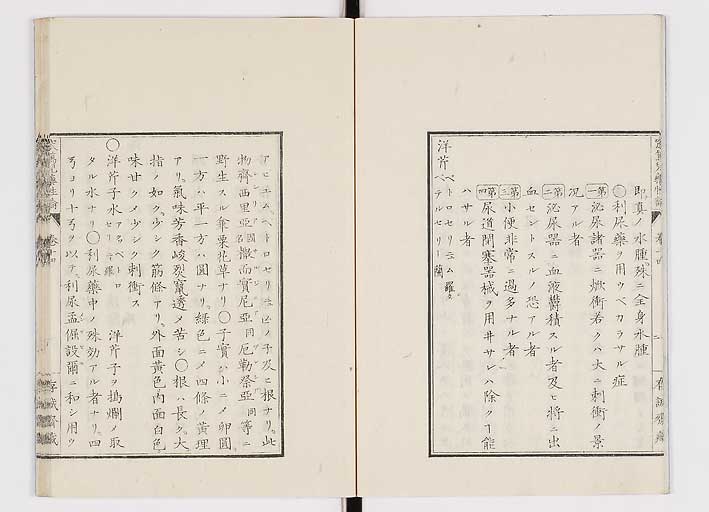 即真ノ水腫殊ニ全身水腫
利尿藥ヲ用ウベカラサル症
第一泌尿諸器ニ焮衝若クハ大ニ刺衝ノ景
况アル者
第二泌尿器ニ血液欝積スル者及ヒ將ニ出
血セントスルノ恐アル者
第三小便非常ニ過多ナル者
第四尿道閉塞器械ヲ用井サレハ除クヿ能
ハサル者
洋芹 ペトロセリニユム羅 ペテルセリー蘭
アヒユムペトロセリニユムノ子及ヒ根ナリ此
物齊西里亞 撒而實尼亞同厄勒祭亞同等ニ
野生スル 花草ナリ〇子實ハ小ニメ卵圓
一方ハ平一方ハ圓ナリ綠色ニメ四條ノ黃理
アリ氣味芳香峻烈竄透メ苦シ〇根ハ長ク大
指ノ如ク少シク筋條アリ外面黃色內面白色
味甘クメ少シク刺衝ス
〇洋芹子水 アクアペトロセリーニ羅 洋芹子ヲ搗爛メ取
タル水ナリ〇利尿藥中ノ殊効アル者ナリ四
弓ヨリ十弓ヲ以テ利尿孟倔設爾ニ和シ用ウ